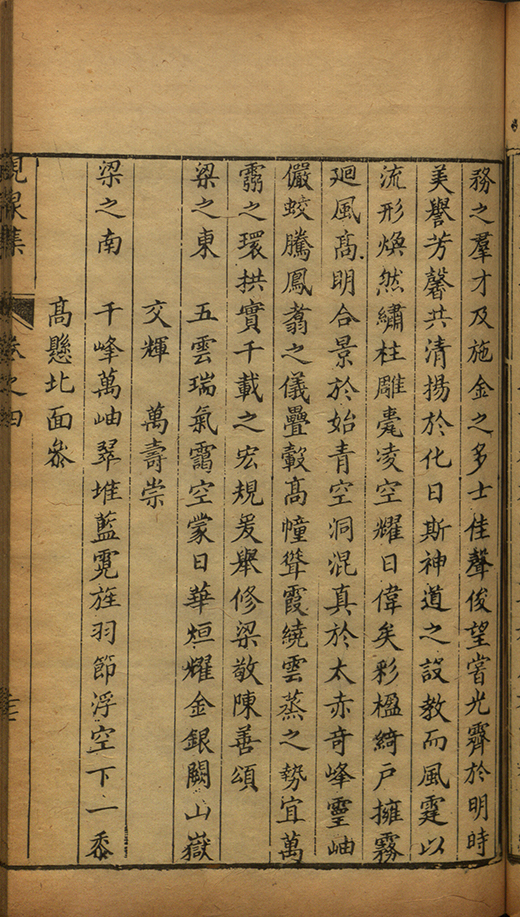 務之羣才及施金之多士佳聲俊望當光霽於明時
美譽芳馨共清揚於化日斯神道之設教而風霆以
流形煥然繡柱雕甍凌空耀日偉矣彩楹綺戶擁霧
廻風髙明合景於始青空洞混真於太赤奇峰靈岫
儼蛟騰鳳翥之儀疊轂髙幢聳霞繞雲蒸之勢宜萬
霛之環拱實千載之宏規爰舉修梁敬陳善頌
梁之東　五雲瑞氣靄空蒙日華烜耀金銀闕山嶽
交輝　萬壽崇
梁之南　千峰萬岫翠堆藍霓旌羽節浮空下一黍
髙懸北面叅
峴泉集　卷之四